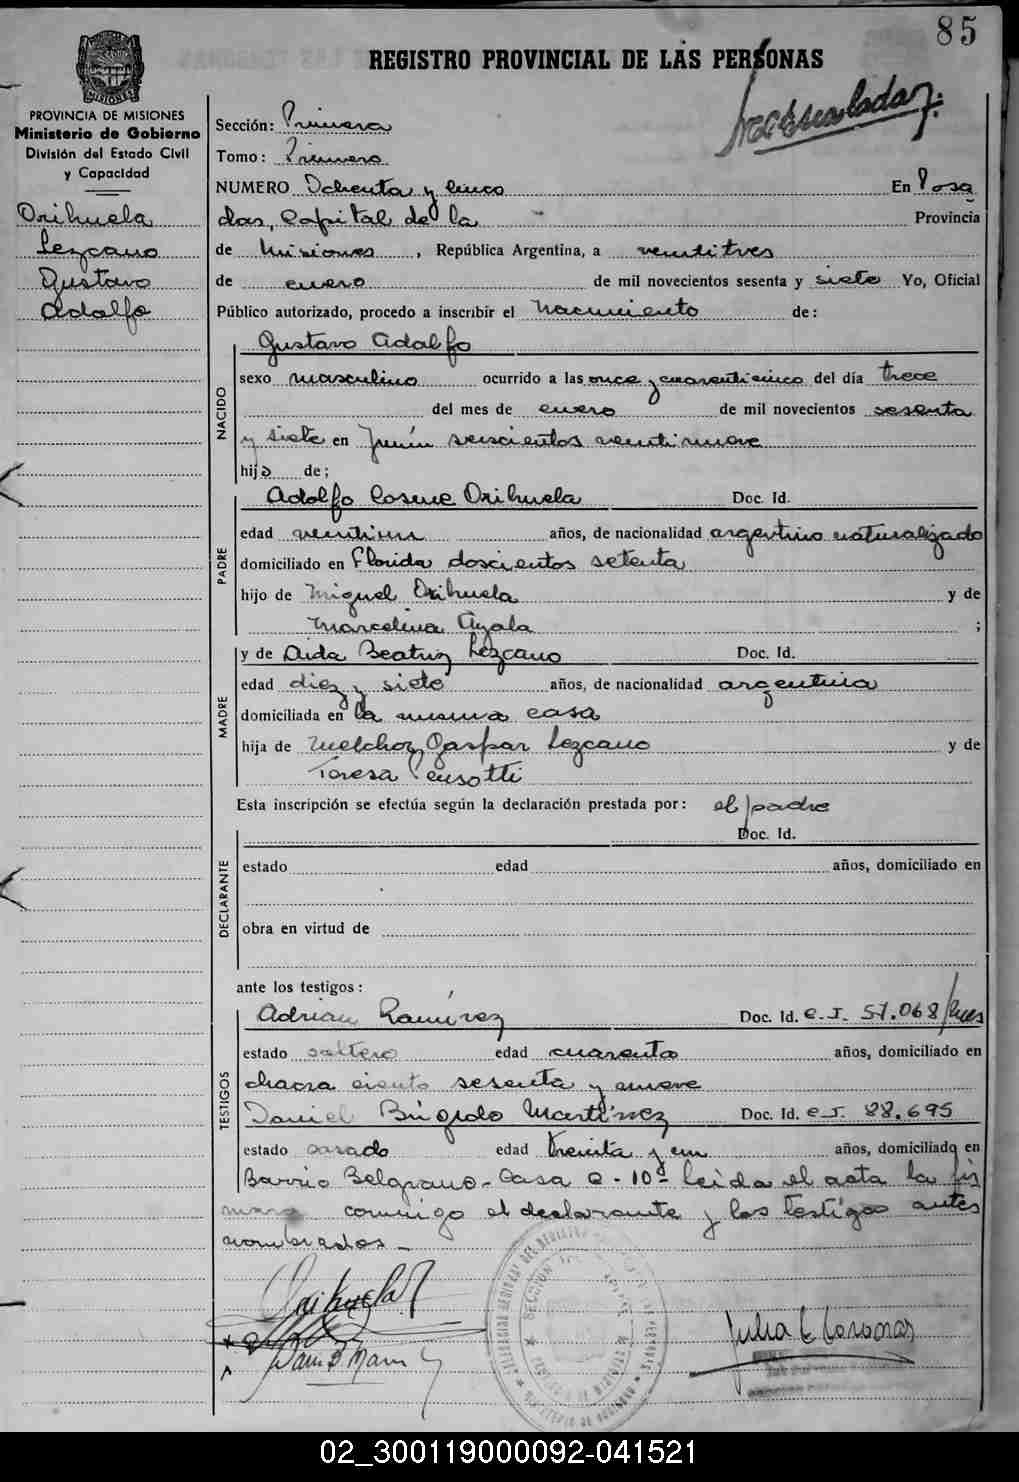 85
REGISTRO PROVINCIAL DE LAS PERSONAS
MISIONES
PROVINCIA DE MISIONES
Ministerio de Gobierno
División del Estado Civil
y Capacidad
Orihuela
Lezcano
Gustavo
Adolfo
Sección: Primera
Tomo: Primero
NUMERO Ochenta y cinco En Posa
das, Capital de la Provincia
de Misiones, República Argentina, a veintitres
de enero de mil novecientos sesenta y siete Yo, Oficial
Público autorizado, procedo a inscribir el nacimiento de:
NACIDO
Gustavo Adolfo
sexo masculino ocurrido a las once y cuarenticinco del día trece
del mes de enero de mil novecientos sesenta
y siete en Junín seiscientos veintinueve
hijo de;
PADRE
Adolfo Cosme Orihuela Doc. Id.
edad años, de nacionalidad argentino naturalizado
domiciliado en Florida doscientos setenta
hijo de Miguel Orihuela y de
Marcelina Ayala ;
MADRE
y de Aida Beatriz Lezcano Doc. Id.
edad diez y siete años, de nacionalidad argentina
domiciliada en la misma casa
hija de Melchor Gaspar Lezcano y de
Teresa Pensotti
Esta inscripción se efectúa según la declaración prestada por: el padre
DECLARANTE
Doc. Id.
estado edad años, domiciliado en
obra en virtud de
ante los testigos:
TESTIGOS
Adrian Ramírez Doc. Id. C.I. 51.068/
estado soltero edad cuarenta años, domiciliado en
chacra ciento sesenta y nueve
Daniel Brígido Martínez Doc. Id. C.I. 88.695
estado casado edad treinta y un años, domiciliado en
Barrio Belgrano - Casa C - 10ª leida el acta la fir
man conmigo el declarante y los testigos antes
nombrados -
Orihuela
02_300119000092-041521